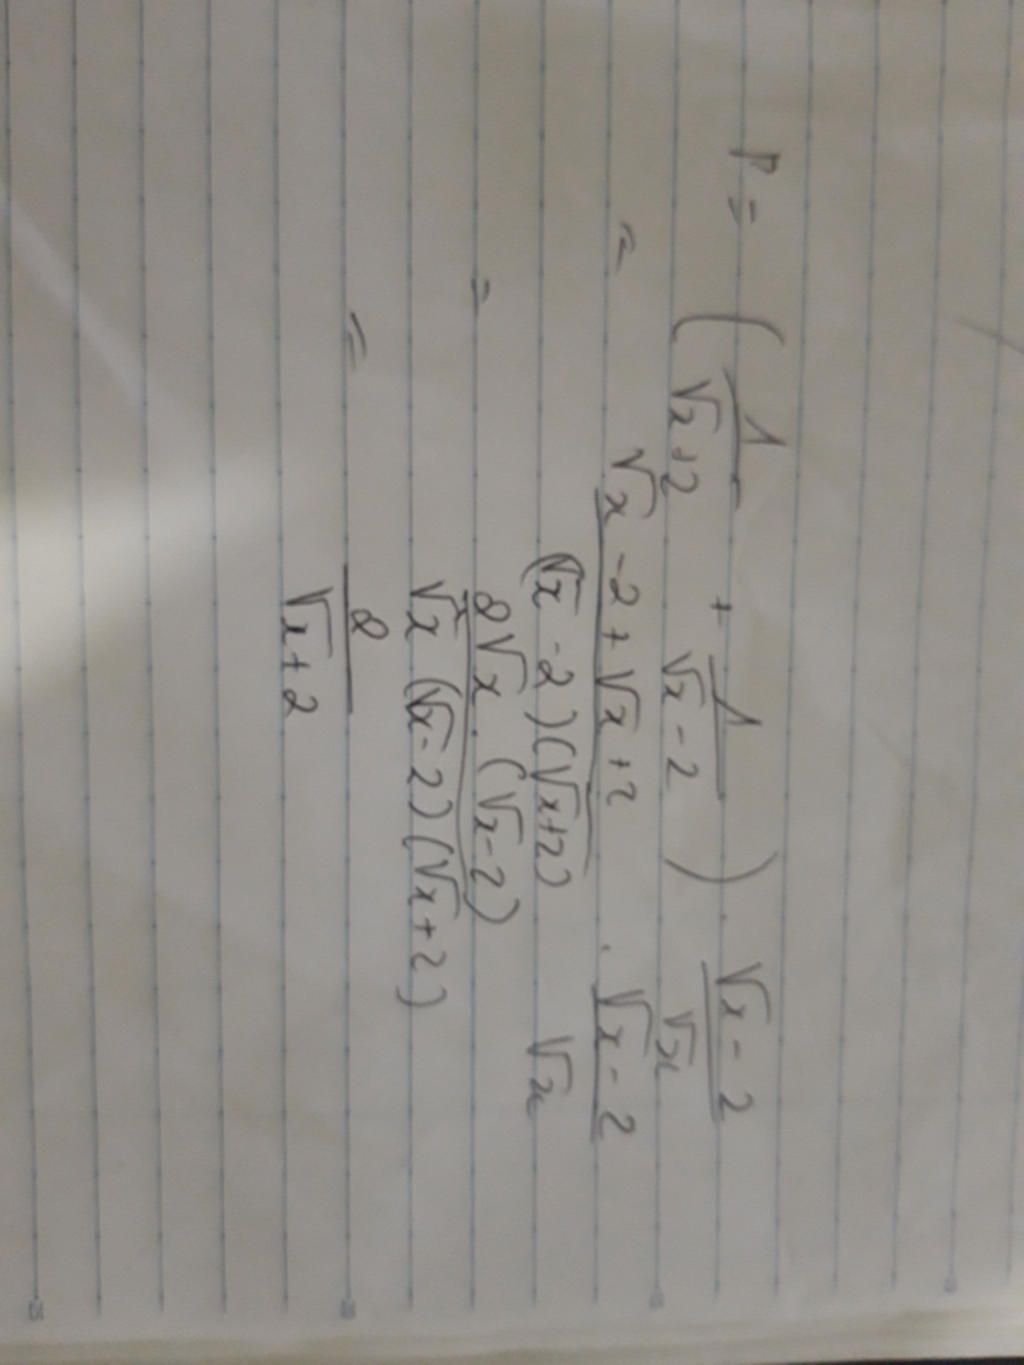 P = ( 1/(√x+2) + 1/(√x-2) ) . (√x-2)/√x
= (√x-2+√x+2)/((√x-2)(√x+2)) . (√x-2)/√x
= (2√x . (√x-2))/(√x (√x-2)(√x+2))
= 2/(√x+2)